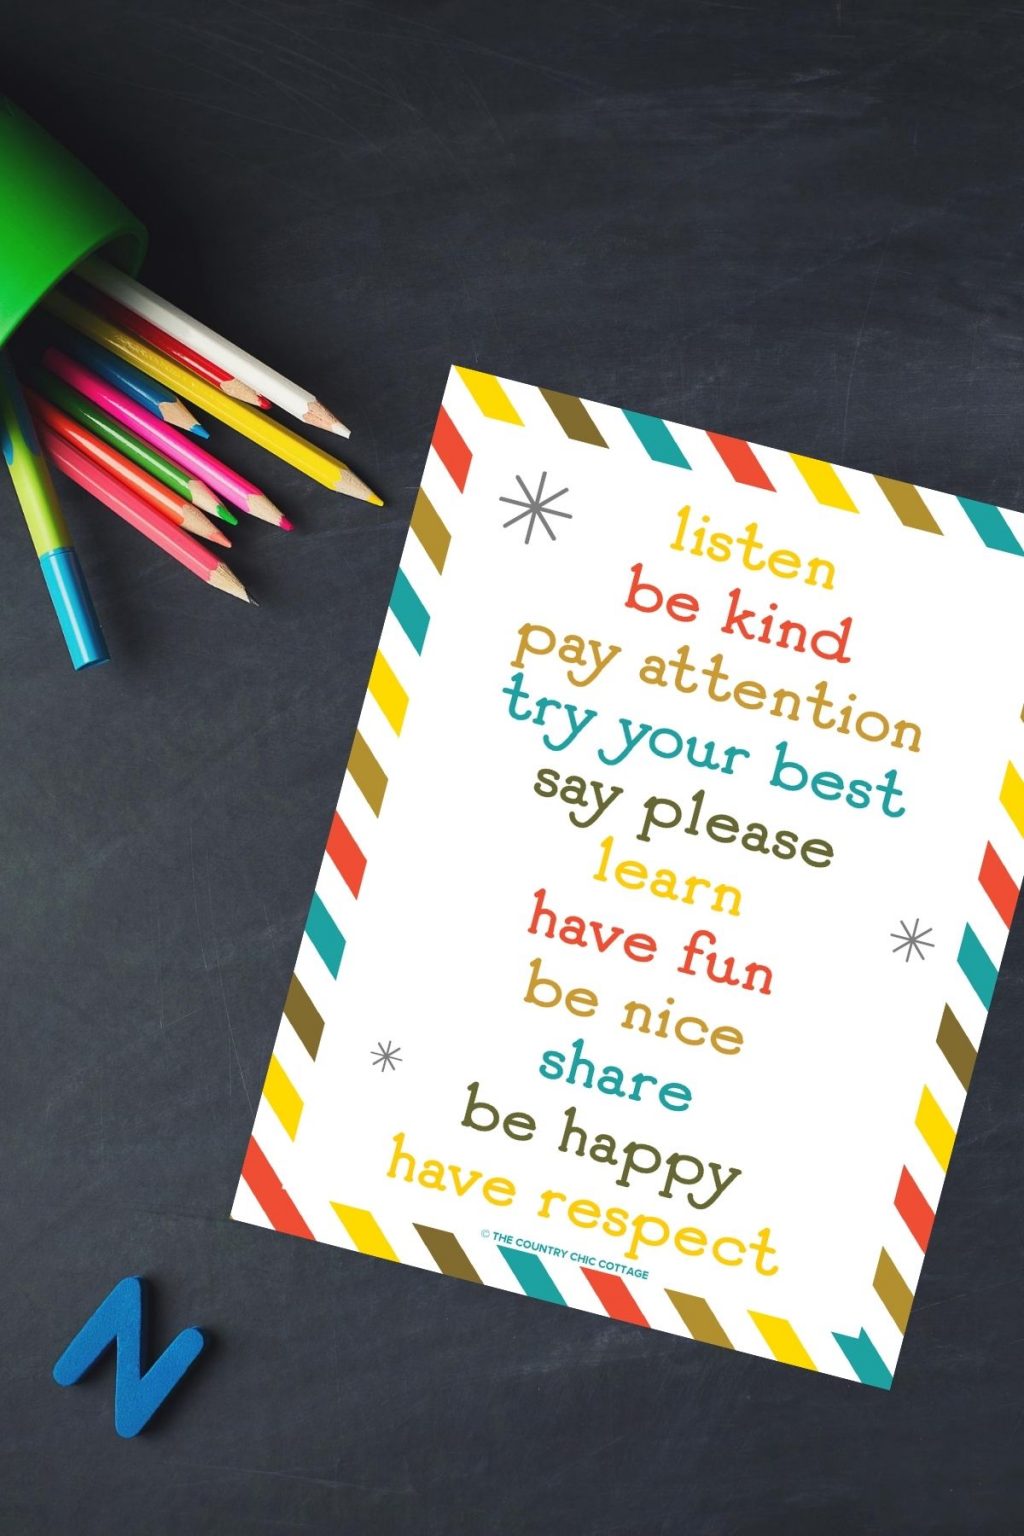 listen
be kind
pay attention
try your best
say please
learn
have fun
be nice
share
be happy
have respect
© THE COUNTRY CHIC COTTAGE
N